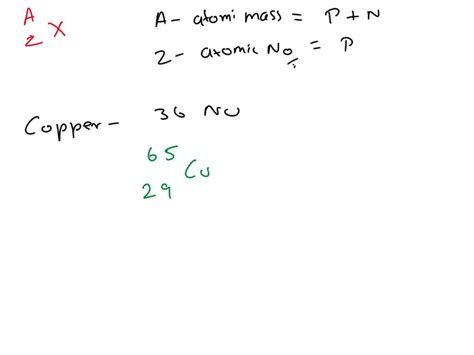 A
Z X
A - atomi mass = P + N
Z - atomic No = P
Copper - 36 No
65
Cu
29